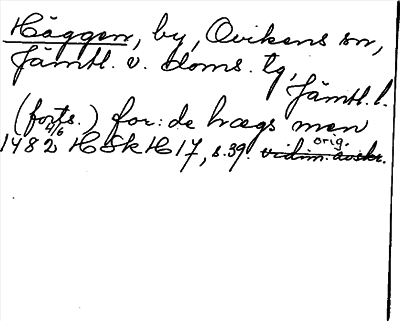 Häggen, by, Ovikens sn,
Jämtl. v. doms. tg,
Jämtl. l.
(forts.) for: de hægs men
1482 4/6 HSkH 17, s. 39. vidim. avskr. orig.